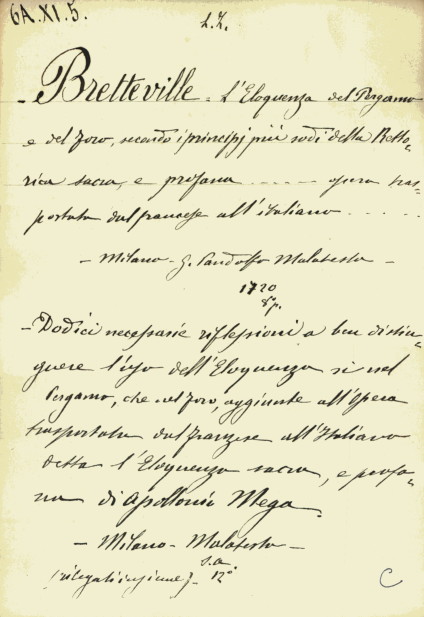 6A.XI.5.
L.Z.
- Bretteville - L'Eloquenza del Pergamo
e del Foro, secondo i principj più sodi della Retto-
rica sacra, e profana ...... opera tras-
portata dal francese all'italiano .....
- Milano - G. Pandolfo Malatesta -
1720
8º p.
- Dodici necessarie riflessioni a ben distin-
guere l'uso dell'Eloquenza sì nel
Pergamo, che nel Foro, aggiunte all'Opera
trasportata dal franzese all'Italiano
detta l'Eloquenza sacra, e profa-
na di Apollonio Mega.
- Milano - Malatesta -
s.a
(rilegati insieme) 12º
C